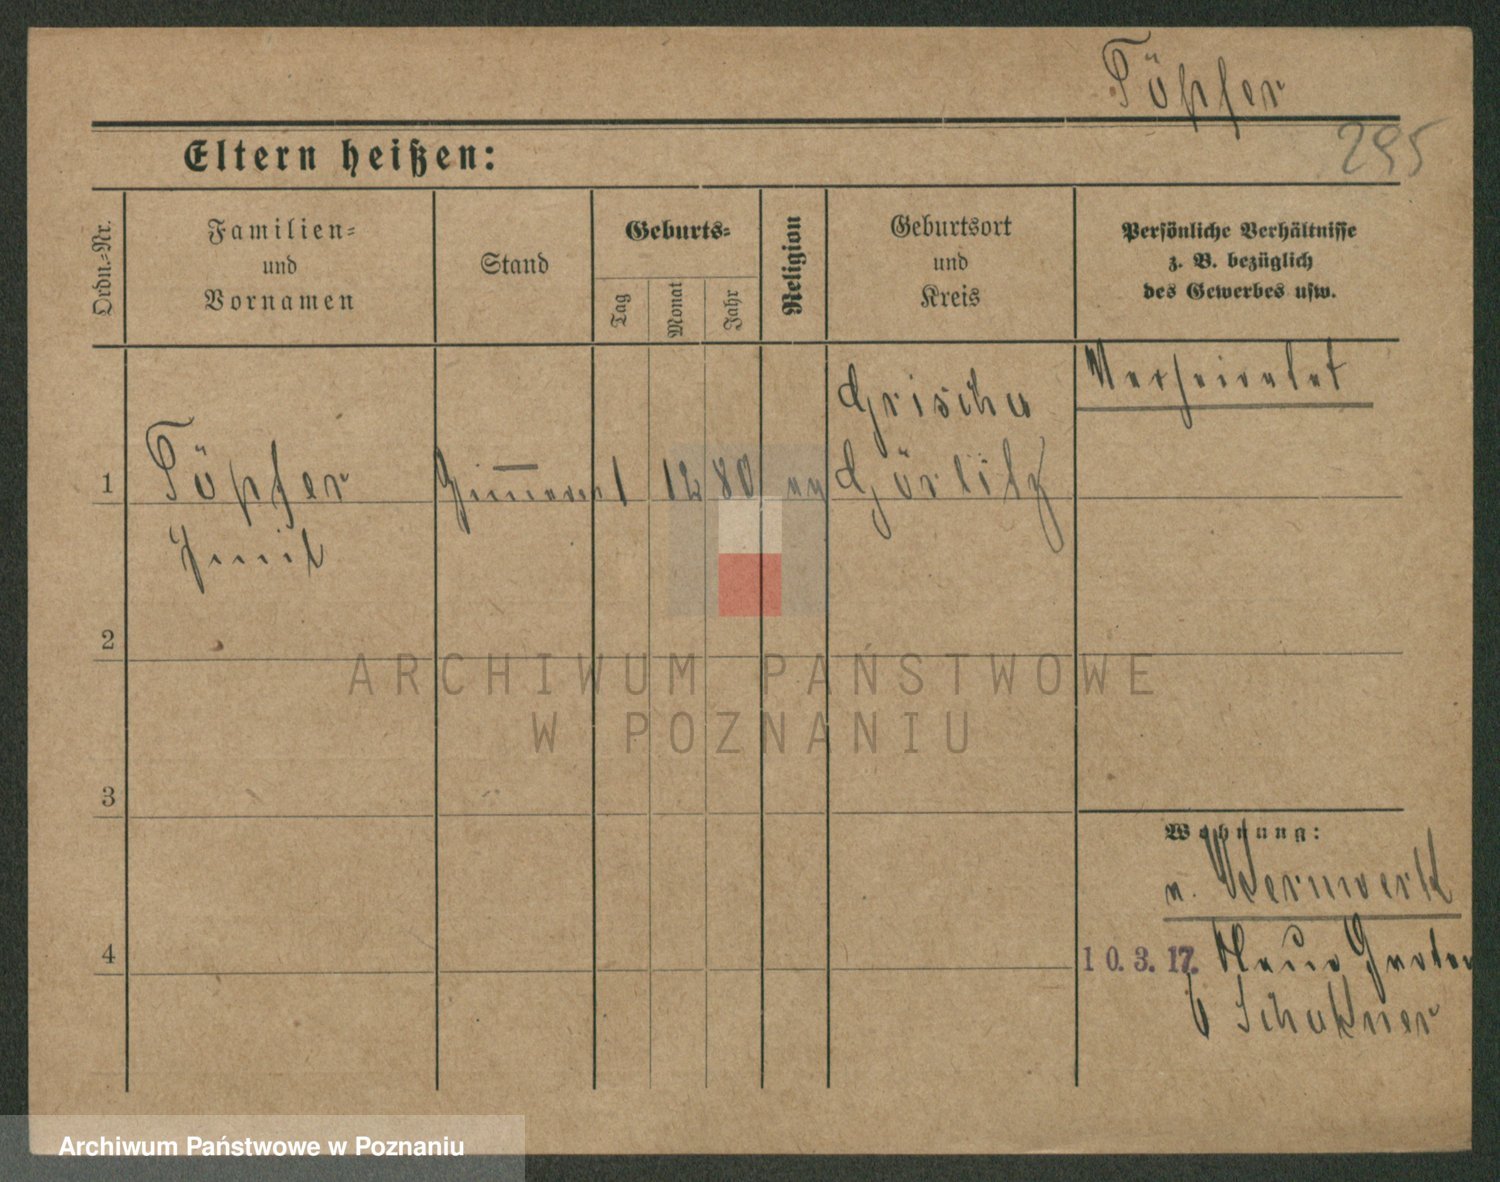 Töpfer
295
Eltern heißen:
Ordn.-Nr.
Familien-
und
Vornamen
Stand
Geburts-
Tag
Monat
Jahr
Religion
Geburtsort
und
Kreis
Persönliche Verhältnisse
z. B. bezüglich
des Gewerbes usw.
Verheiratet
1
Töpfer
1 12 80 ev
Görlitz
Emil
2
3
4
Wohnung:
v. Wermwerk
10.3.17. Neue Garten
b Schukner
ARCHIWUM PAŃSTWOWE
W POZNANIU
Archiwum Państwowe w Poznaniu